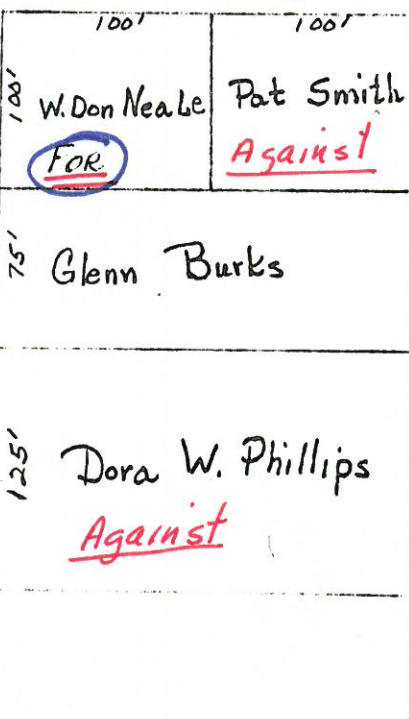 100'
100'
100'
W. Don Neale
Pat Smith
FOR
Against
75'
Glenn Burks
125'
Dora W. Phillips
Against